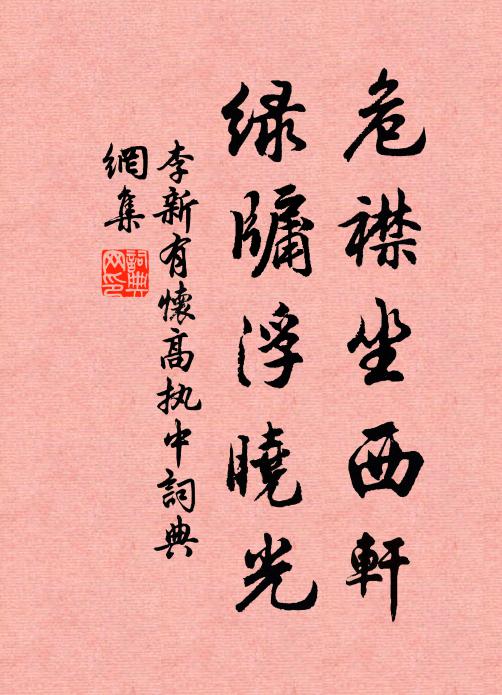 危襟坐西軒
绿牖浮曉光
李新有懷高执中詞典
網集
詞典
网印